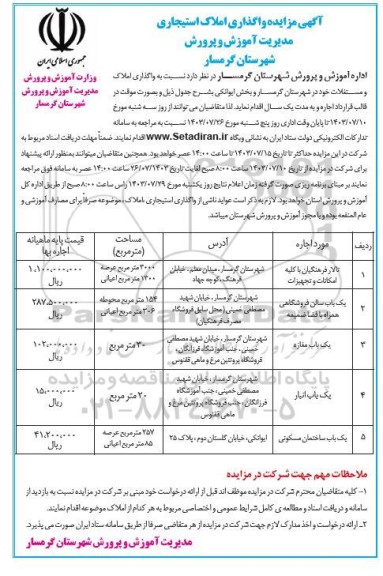 آگهی مزایده واگذاری املاک استیجاری
مدیریت آموزش و پرورش
شهرستان گرمسار
جمهوری اسلامی ایران
وزارت آموزش و پرورش
مدیریت آموزش و پرورش
شهرستان گرمسار
اداره آموزش و پرورش شهرستان گرمسار در نظر دارد نسبت به واگذاری املاک
و مستغلات خود در شهرستان گرمسار و بخش ایوانکی بشرح جدول ذیل و بصورت موقت در
قالب قرارداد اجاره و به مدت یک سال اقدام نماید. لذا متقاضیان می توانند از روز سه شنبه مورخ
۱۴۰۳/۰۷/۱۰ تا پایان وقت اداری روز پنج شنبه مورخ ۱۴۰۳/۰۷/۲۶ نسبت به مراجعه به سامانه
تدارکات الکترونیکی دولت ستاد ایران به نشانی وبگاه www.Setadiran.ir اقدام نمایند. ضمناً مهلت دریافت اسناد مربوط به
شرکت در این مزایده حداکثر تا تاریخ ۱۴۰۳/۰۷/۱۵ تا ساعت ۱۴:۰۰ عصر خواهد بود. همچنین متقاضیان میتوانند بمنظور ارائه پیشنهاد
برای شرکت در مزایده از تاریخ ۱۴۰۳/۰۷/۱۰ ساعت ۸:۰۰ صبح لغایت تاریخ ۲۶/۰۷/۱۴۰۳ ساعت ۱۴:۰۰ عصر به سامانه فوق مراجعه
نمایند بر مبنای برنامه ریزی صورت گرفته زمان اعلام نتایج روز یکشنبه مورخ ۱۴۰۳/۰۷/۲۹ راس ساعت ۸:۰۰ صبح از طریق اداره کل
آموزش و پرورش استان خواهد بود. لازم به ذکر است عواید ناشی از واگذاری استیجاری املاک، موضوعه صرفا برای مصارف آموزشی و
عام المنفعه بوده و با مجوز آموزش و پرورش شهرستان میباشد.
ردیف مورد اجاره آدرس مساحت (مترمربع) قیمت پایه ماهیانه اجاره بها
۱ تالار فرهنگیان با کلیه امکانات و تجهیزات شهرستان گرمسار، میدان معلم، خیابان فرهنگ، کوچه جهاد ۳۰۰۰ متر مربع عرصه ۱۳۰۰ متر مربع اعیانی ۱.۱۰۰.۰۰۰.۰۰۰ ریال
۲ یک باب سالن فروشگاهی همراه با فضا ضمیمه شهرستان گرمسار، خیابان شهید مصطفی خمینی (محل سابق فروشگاه مصرف فرهنگیان) ۱۵۴ متر مربع محوطه ۳۰۶ متر مربع اعیانی ۲۸۷.۵۰۰.۰۰۰ ریال
۳ یک باب مغازه شهرستان گرمسار، خیابان شهید مصطفی خمینی، جنب آموزشگاه فرزانگان، فروشگاه پروتئین مرغ و ماهی ققنوس ۳۰ متر مربع ۱۰۲.۰۰۰.۰۰۰ ریال
۴ یک باب انبار شهرستان گرمسار، خیابان شهید مصطفی خمینی، جنب آموزشگاه فرزانگان، جنب فروشگاه پروتئین مرغ و ماهی ققنوس ۷۰ متر مربع ۱۵.۰۰۰.۰۰۰ ریال
۵ یک باب ساختمان مسکونی ایوانکی، خیابان گلستان دوم، پلاک ۲۵ ۲۵۷ متر مربع عرصه ۸۵ متر مربع اعیانی ۴۱.۲۰۰.۰۰۰ ریال
ملاحظات مهم جهت شرکت در مزایده
۱- کلیه متقاضیان محترم شرکت در مزایده موظف اند قبل از ارائه درخواست خود مبنی بر شرکت در مزایده نسبت به بازدید از
سامانه و دریافت اسناد و مطالعه ی کامل شرایط عمومی و اختصاصی مربوط به هر کدام از املاک موضوعه اقدام نمایند.
۲- ارائه درخواست و اخذ مدارک لازم جهت شرکت در مزایده از هر متقاضی صرفا از طریق سامانه ستاد ایران صورت می پذیرد.
مدیریت آموزش و پرورش شهرستان گرمسار